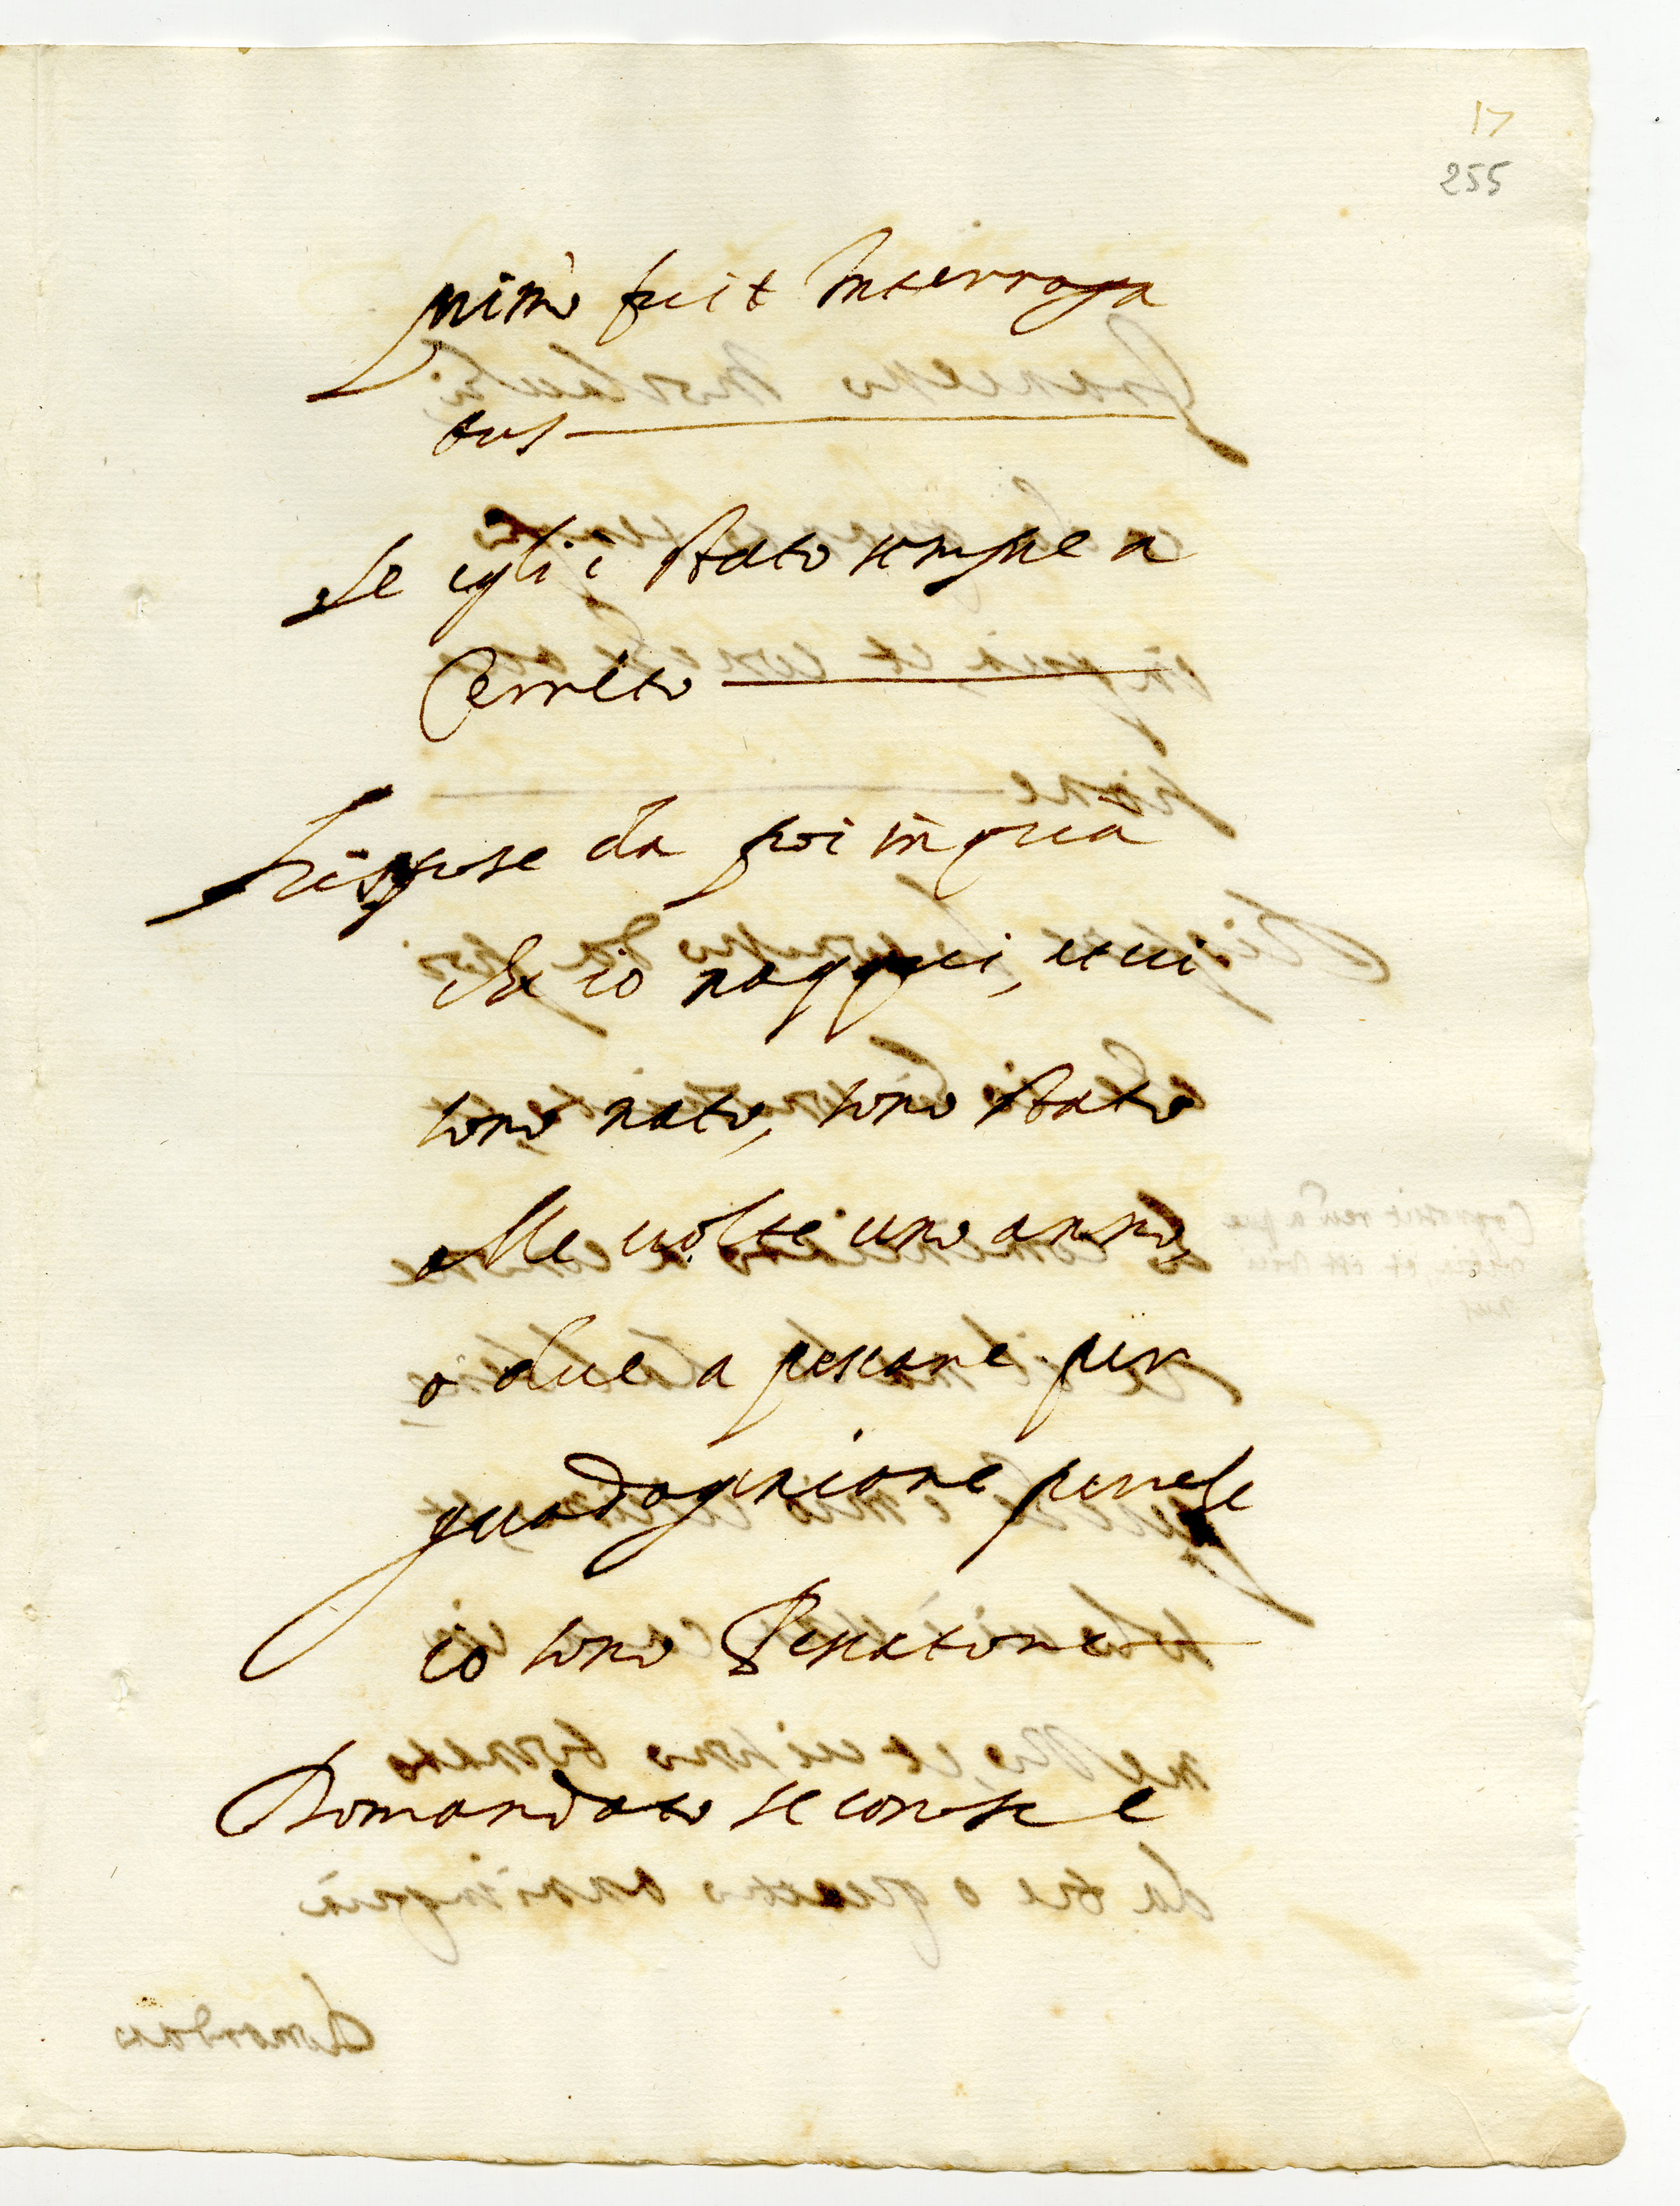 17
255
primo fuit Interroga
tus
Se egli è stato sempre a
Cerreto
Rispose da poi in qua
che io nacqui, et ui
sono nato, sono stato
alle uolte uno anno,
o due a pescare per
guadagniare perche
io sono Pescatore
Domandato se conosce